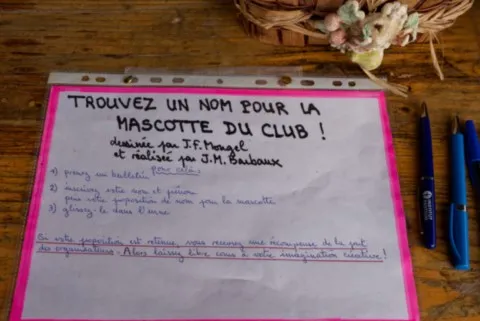 TROUVEZ UN NOM POUR LA
MASCOTTE DU CLUB !
dessinée par J.F. Mongel
et réalisée par J.M. Barbaux
pour cela :
1) prenez un bulletin
2) inscrivez votre nom et prénom
puis votre proposition de nom pour la mascotte
3) glissez-le dans l'urne
Si votre proposition est retenue, vous recevrez une récompense de la part
des organisateurs. Alors laissez libre cours à votre imagination créatrice !